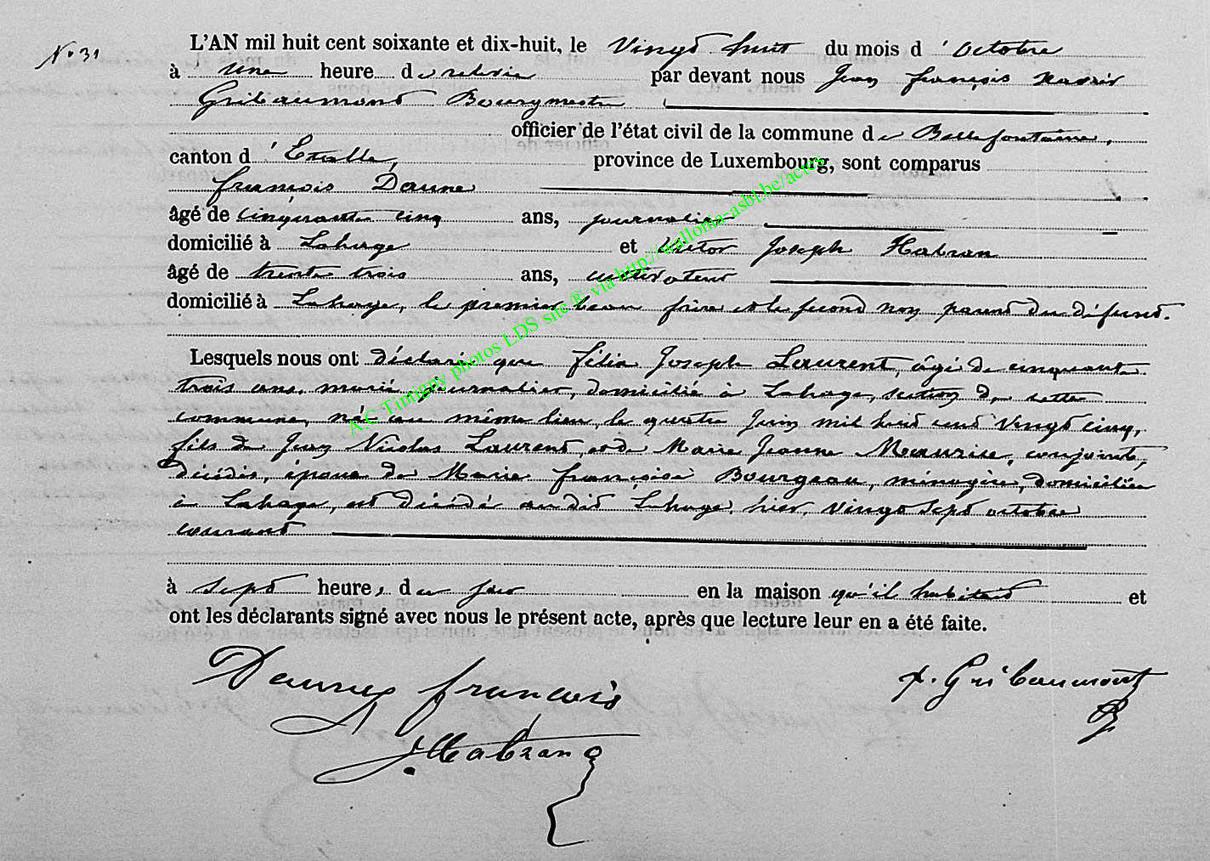 N° 31
L'AN mil huit cent soixante et dix-huit, le Vingt huit du mois d'Octobre
à une heure de relevée par devant nous Jean François Xavier
Gribaumont Bourgmestre
officier de l'état civil de la commune de Bellefontaine,
canton d'Etalle, province de Luxembourg, sont comparus
françois Daune
âgé de cinquante cinq ans, journalier
domicilié à Lahage et Victor Joseph Habran
âgé de trente trois ans, cultivateur
domicilié à Lahage, le premier beau frère et le second non parent du défunt.
Lesquels nous ont déclaré que félix Joseph Laurent, âgé de cinquante
trois ans, marié, journalier, domicilié à Lahage, section de cette
commune, né au même lieu, le quatre Juin mil huit cent Vingt cinq,
fils de Jean Nicolas Laurent, et de Marie Jeanne Maurice, conjoints,
décédés, époux de Marie françoise Bourgeau, ménagère, domiciliée
à Lahage, est décédé audit Lahage, hier, vingt sept octobre
courant
à sept heures du soir en la maison qu'il habitait et
ont les déclarants signé avec nous le présent acte, après que lecture leur en a été faite.
Daune françois
x. Gribaumont
J. Habran
A.C. Tintigny photos LDS site ® via http://wallonia-asbl.be/actes